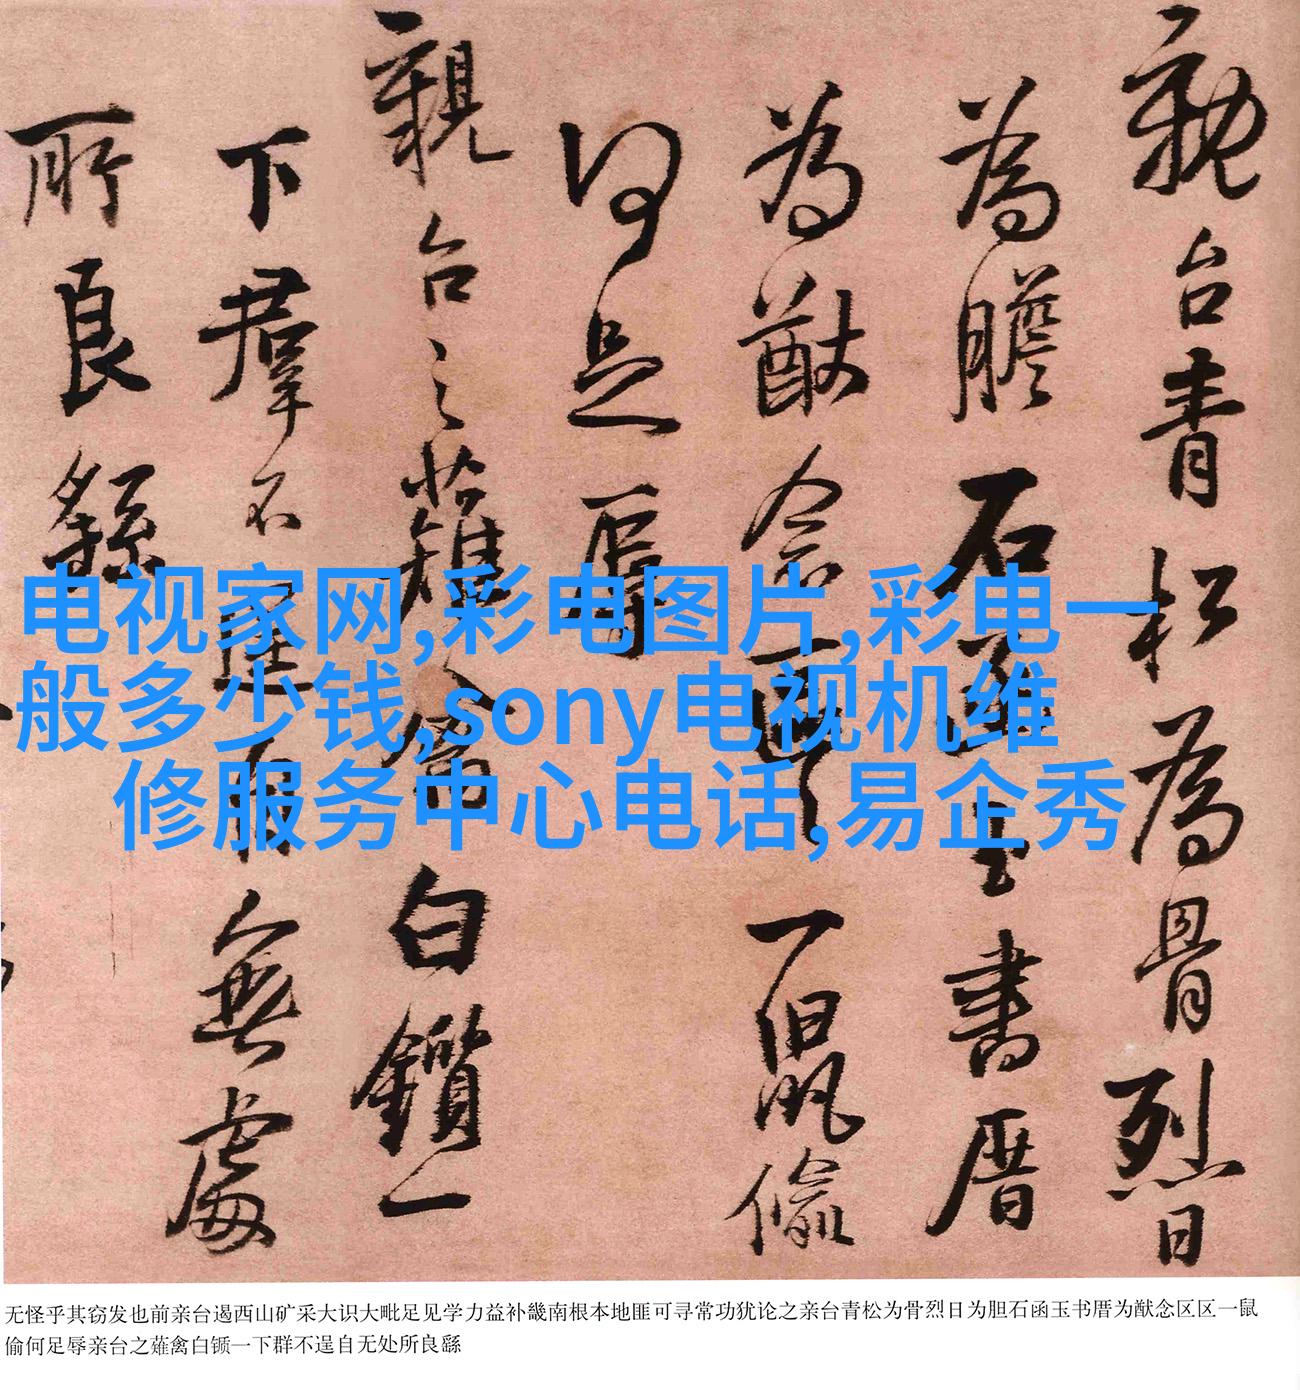 親台青松為骨烈日
為膽石函玉書厝
為猷念區區一鼠偷
何足辱
親台之薙禽白鑕一
下羣不逞自無處
所良繇
电视家网,彩电图片,彩电一
般多少钱,sony电视机维
修服务中心电话,易企秀
无怪乎其窃发也前亲台遏西山矿采大识大毗足见学力益补畿南根本地匪可寻常功犹论之亲台青松为骨烈日为胆石函玉书厝为猷念区区一鼠
偷何足辱亲台之薙禽白锧一下群不逞自无处所良繇